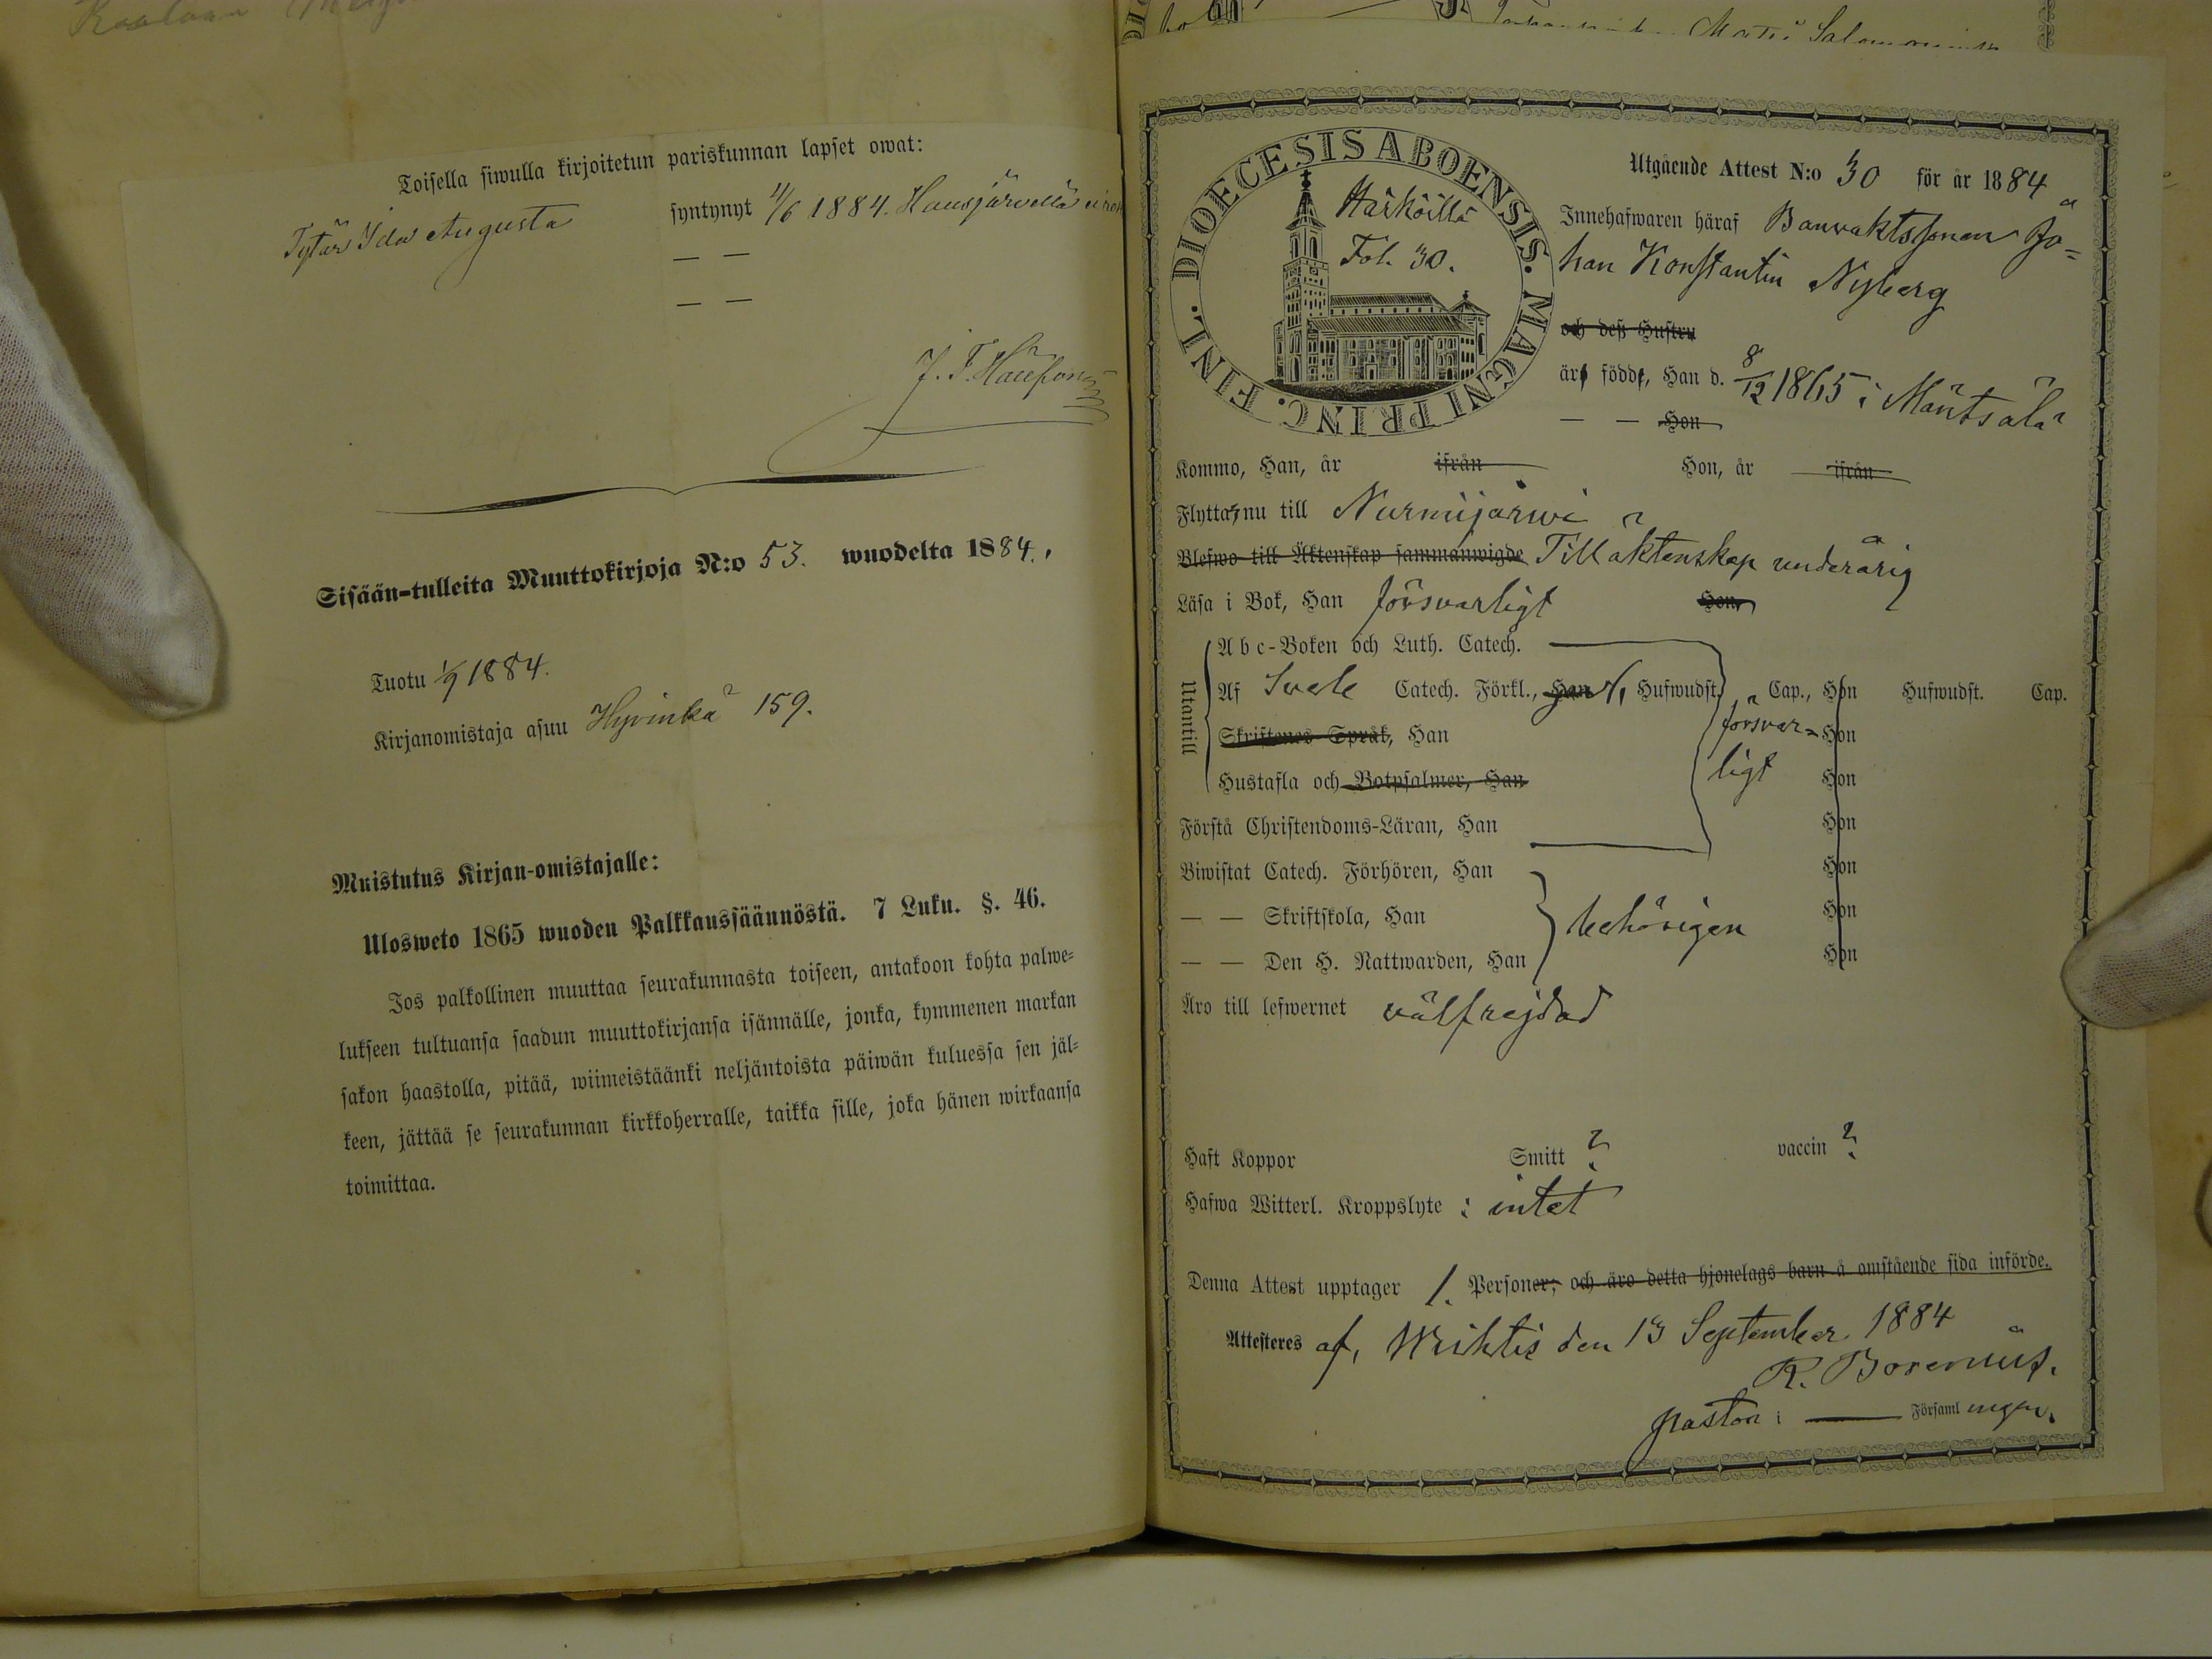 Toisella siwulla kirjoitetun pariskunnan lapset owat:
Tytär Ida Augusta syntynyt 11/6 1884. Hausjärvellä
— —
— —
Sisään-tulleita Muuttokirjoja N:o 53. wuodelta 1884.
Tuotu 1/9 1884.
Kirjanomistaja asuu Hyvinkä 159.
Muistutus Kirjan-omistajalle:
Ulosweto 1865 wuoden Palkkaussäännöstä. 7 Luku. §. 46.
Jos palkollinen muuttaa seurakunnasta toiseen, antakoon kohta palwe=
lukseen tultuansa saadun muuttokirjansa isännälle, jonka, kymmenen markan
sakon haastolla, pitää, wiimeistäänki neljäntoista päiwän kuluessa sen jäl=
keen, jättää se seurakunnan kirkkoherralle, taikka sille, joka hänen wirkaansa
toimittaa.
Matti Salomoninp
DIOECESIS ABOENSIS. MAGNI PRINC. FINL.
Härköilä
Fol. 30.
Utgående Attest N:o 30 för år 1884
Innehafwaren häraf Banvaktssonen Jo=
han Konstantin Nyberg
och deß Hustru
äro födde, Han d. 8/12 1865 i Mäntsälä
— — Hon
Kommo, Han, år ifrån Hon, år ifrån
Flytta nu till Nurmijärwi
Blefwo till Äktenskap sammanwigde Till äktenskap underårig
Läsa i Bok, Han försvarligt Hon
Utantill
Abc-Boken och Luth. Catech.
Af Svebe Catech. Förkl., Han Hufwudst. Cap., Hon Hufwudst. Cap.
Skriftenes Språk, Han försvar= Hon
Hustafla och Botpsalmer, Han ligt Hon
Förstå Christendoms-Läran, Han Hon
Biwistat Catech. Förhören, Han Hon
— — Skriftskola, Han behörigen Hon
— — Den H. Nattwarden, Han Hon
Äro till lefwernet välfrejdad
Haft Koppor Smitt ? vaccin ?
Hafwa Witterl. Kroppslyte : intet
Denna Attest upptager 1. Personer; och äro detta hjonelags barn å omstående sida införde.
Attesteres af, Wichtis den 13 September 1884
R. Borenius.
pastor i — Församlingen.